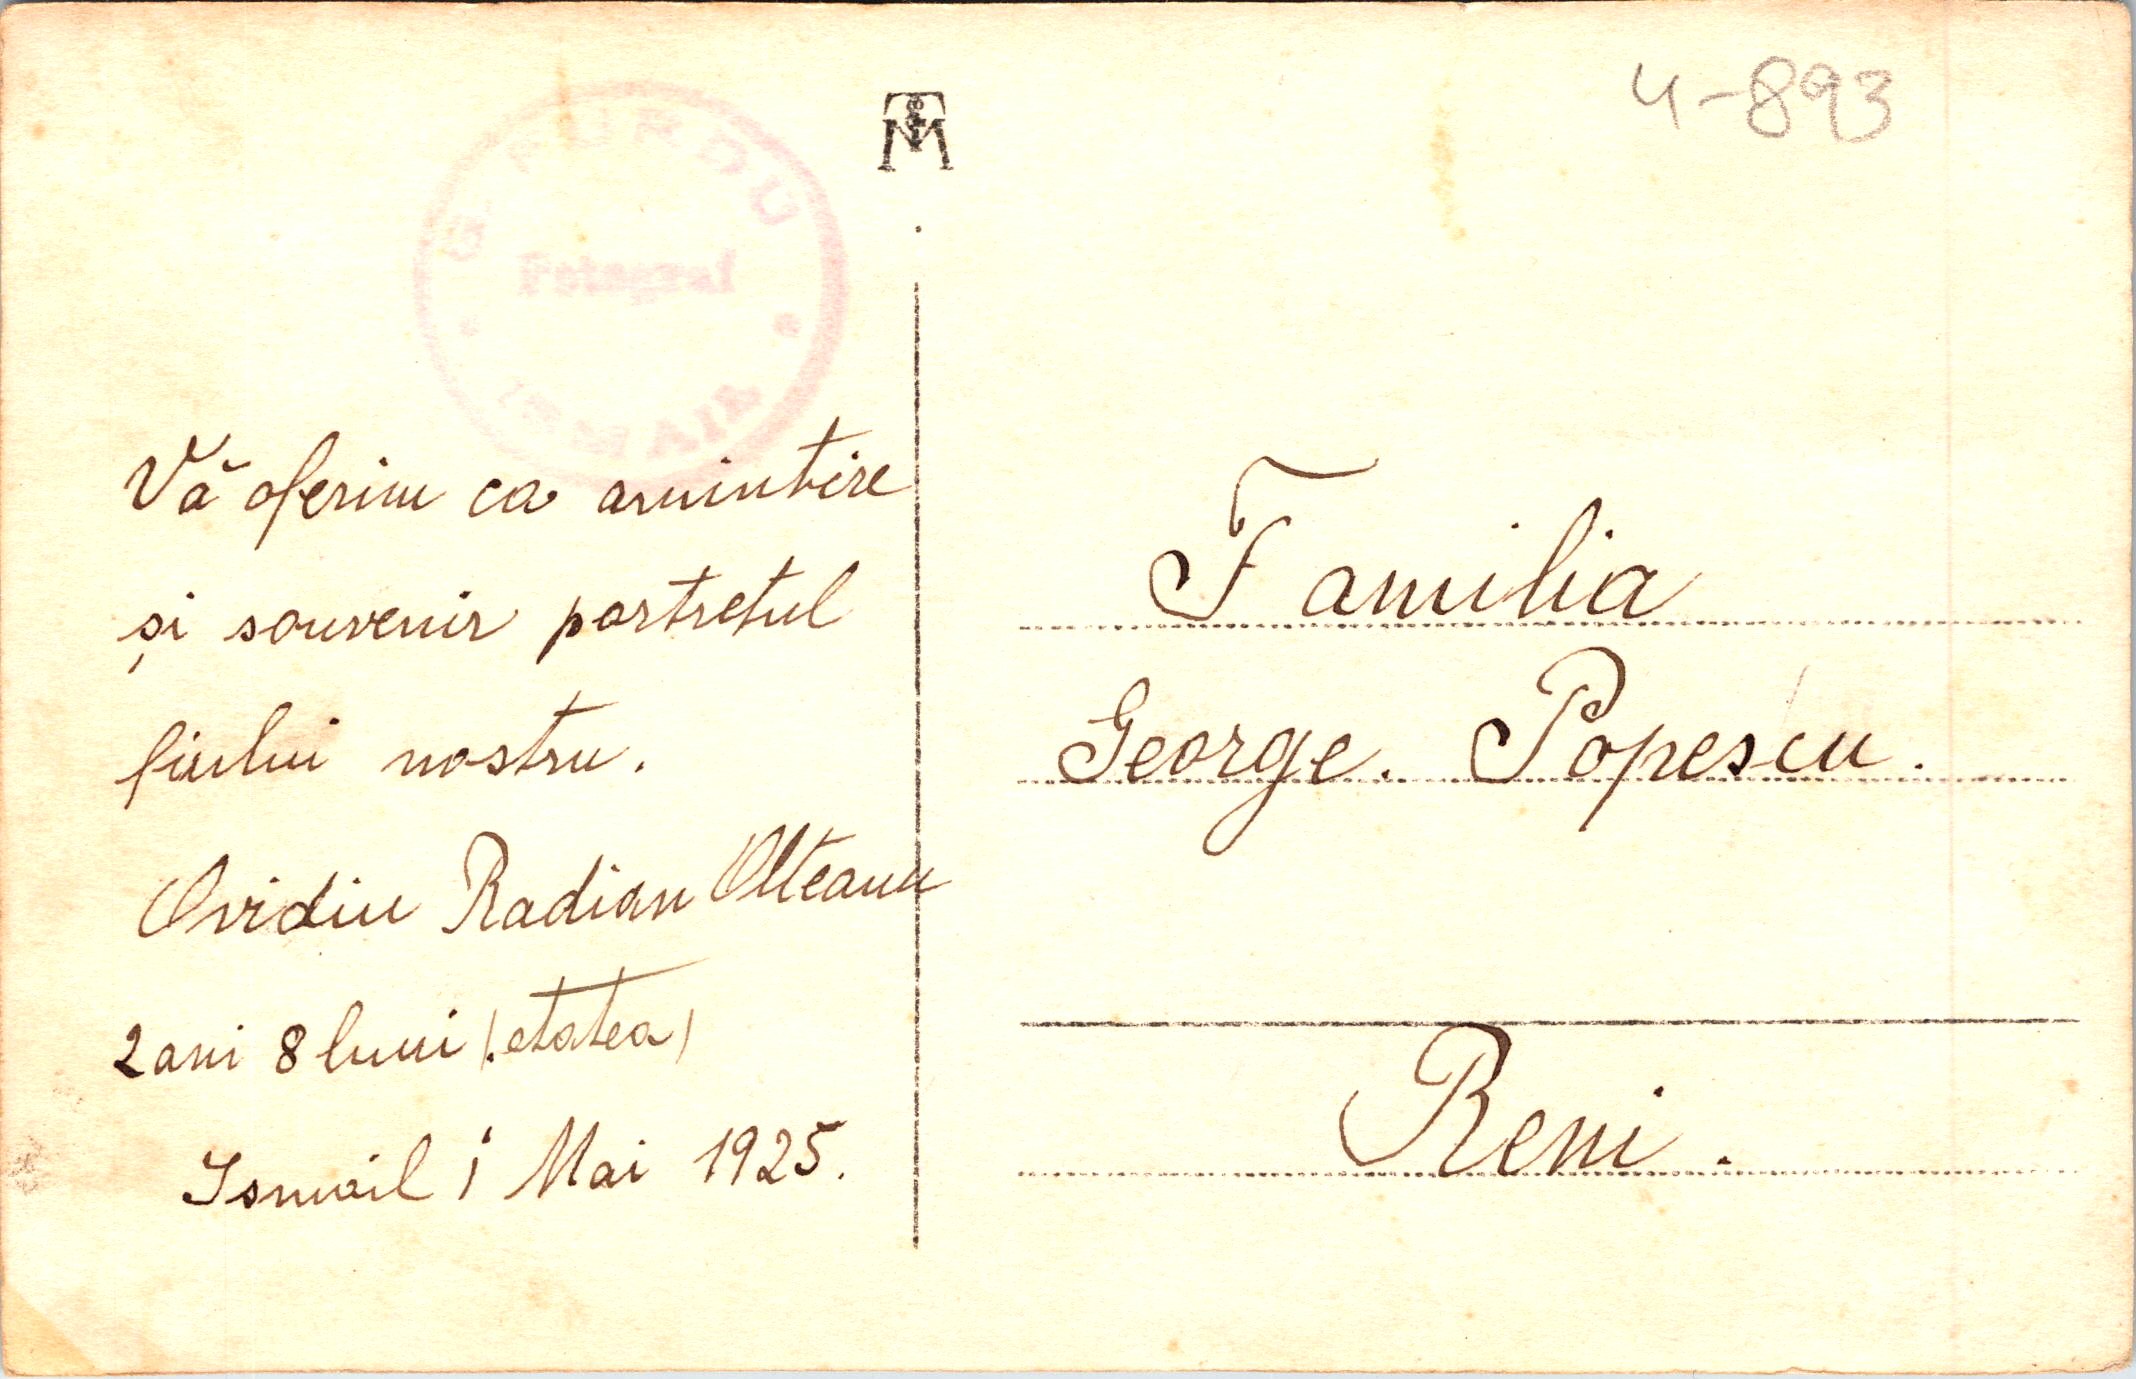 4-893
PURDU
Fotograf
ISMAIL
Vă oferim ca amintire
și souvenir portretul
fiului nostru.
Ovidiu Radian Olteanu
2 ani 8 luni (etatea)
Ismail 1 Mai 1925.
Familia
George. Popescu.
Reni.